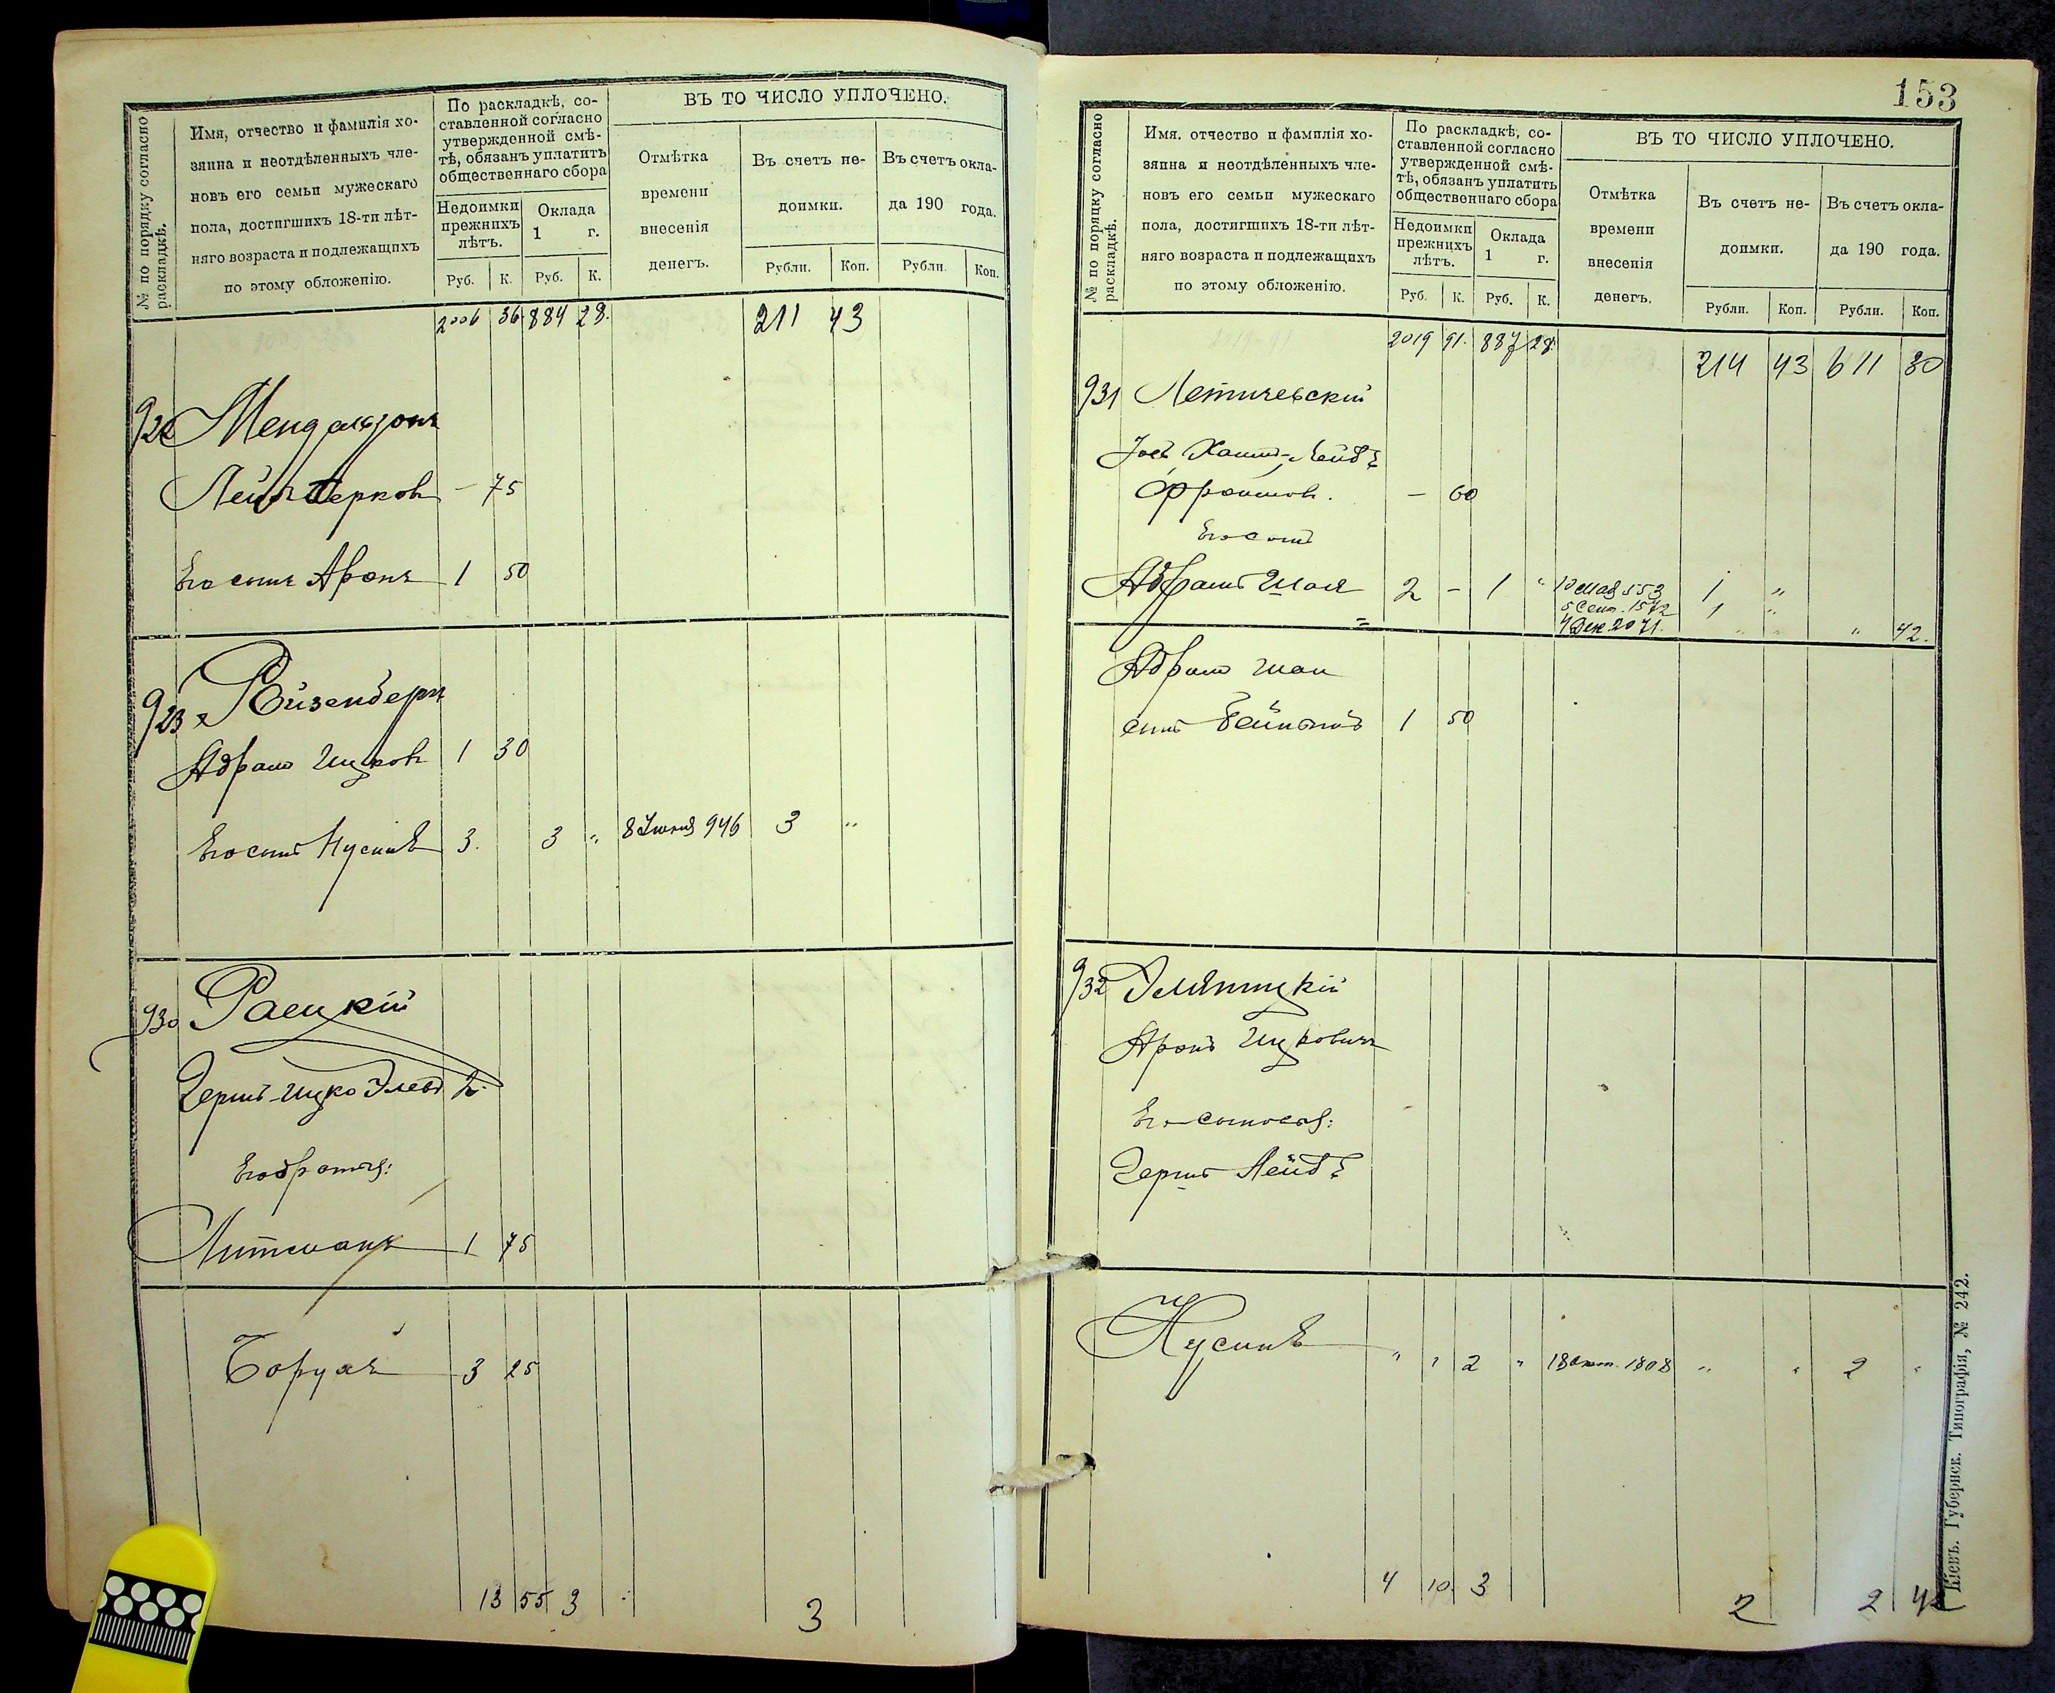 № по порядку согласно раскладкѣ.
Имя, отчество и фамилія хо-
зяина и неотдѣленныхъ чле-
новъ его семьи мужескаго
пола, достигшихъ 18-ти лѣт-
няго возраста и подлежащихъ
по этому обложенію.
По раскладкѣ, со-
ставленной согласно
утвержденной смѣ-
тѣ, обязанъ уплатить
общественнаго сбора
Недоимки
прежнихъ
лѣтъ.
Оклада
1 г.
Руб. К. Руб. К.
ВЪ ТО ЧИСЛО УПЛОЧЕНО.
Отмѣтка
времени
внесенія
денегъ.
Въ счетъ не-
доимки.
Рубли. Коп.
Въ счетъ окла-
да 190 года.
Рубли. Коп.
2006 36 884 28. 211 43
Лейба Берковъ — 75
Его сынъ Аронъ 1 50
Ройзенбергъ
Абрамъ Ицковъ 1 30
Его сынъ Нусинъ 3. 3 " 8 Іюня 946 3 "
930 Раецкій
Гершъ-Ицко 2
Его братья:
Литманъ 1 75
Борухъ 3 25
13 55 3
3
153
№ по порядку согласно раскладкѣ.
Имя, отчество и фамилія хо-
зяина и неотдѣленныхъ чле-
новъ его семьи мужескаго
пола, достигшихъ 18-ти лѣт-
няго возраста и подлежащихъ
по этому обложенію.
По раскладкѣ, со-
ставленной согласно
утвержденной смѣ-
тѣ, обязанъ уплатить
общественнаго сбора
Недоимки
прежнихъ
лѣтъ.
Оклада
1 г.
Руб. К. Руб. К.
ВЪ ТО ЧИСЛО УПЛОЧЕНО.
Отмѣтка
времени
внесенія
денегъ.
Въ счетъ не-
доимки.
Рубли. Коп.
Въ счетъ окла-
да 190 года.
Рубли. Коп.
2019 91. 887 28. 214 43 611 30
931 Летичевскій
Хаимъ-Лейбъ
Фроимов. — 60
Его сынъ
Абрамъ Шая 2 — 1 " 10 мая 553 1 "
5 Сент. 1572 1 "
4 Дек. 2071. " " " 42.
Абрамъ Шаи
сынъ 1 50
932
Аронъ Ицковичъ
Его сыновья:
Гершъ Лейбъ
Нусинъ " " 2 " 18 Окт. 1808 " " 2 "
4 10. 3 2 2 42
Кіевъ. Губернск. Типографія, № 242.